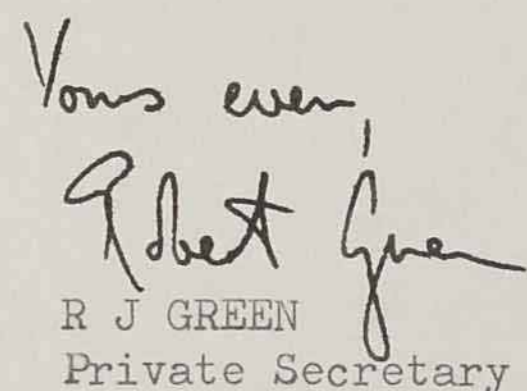 Yours ever,
Robert Green
R J GREEN
Private Secretary